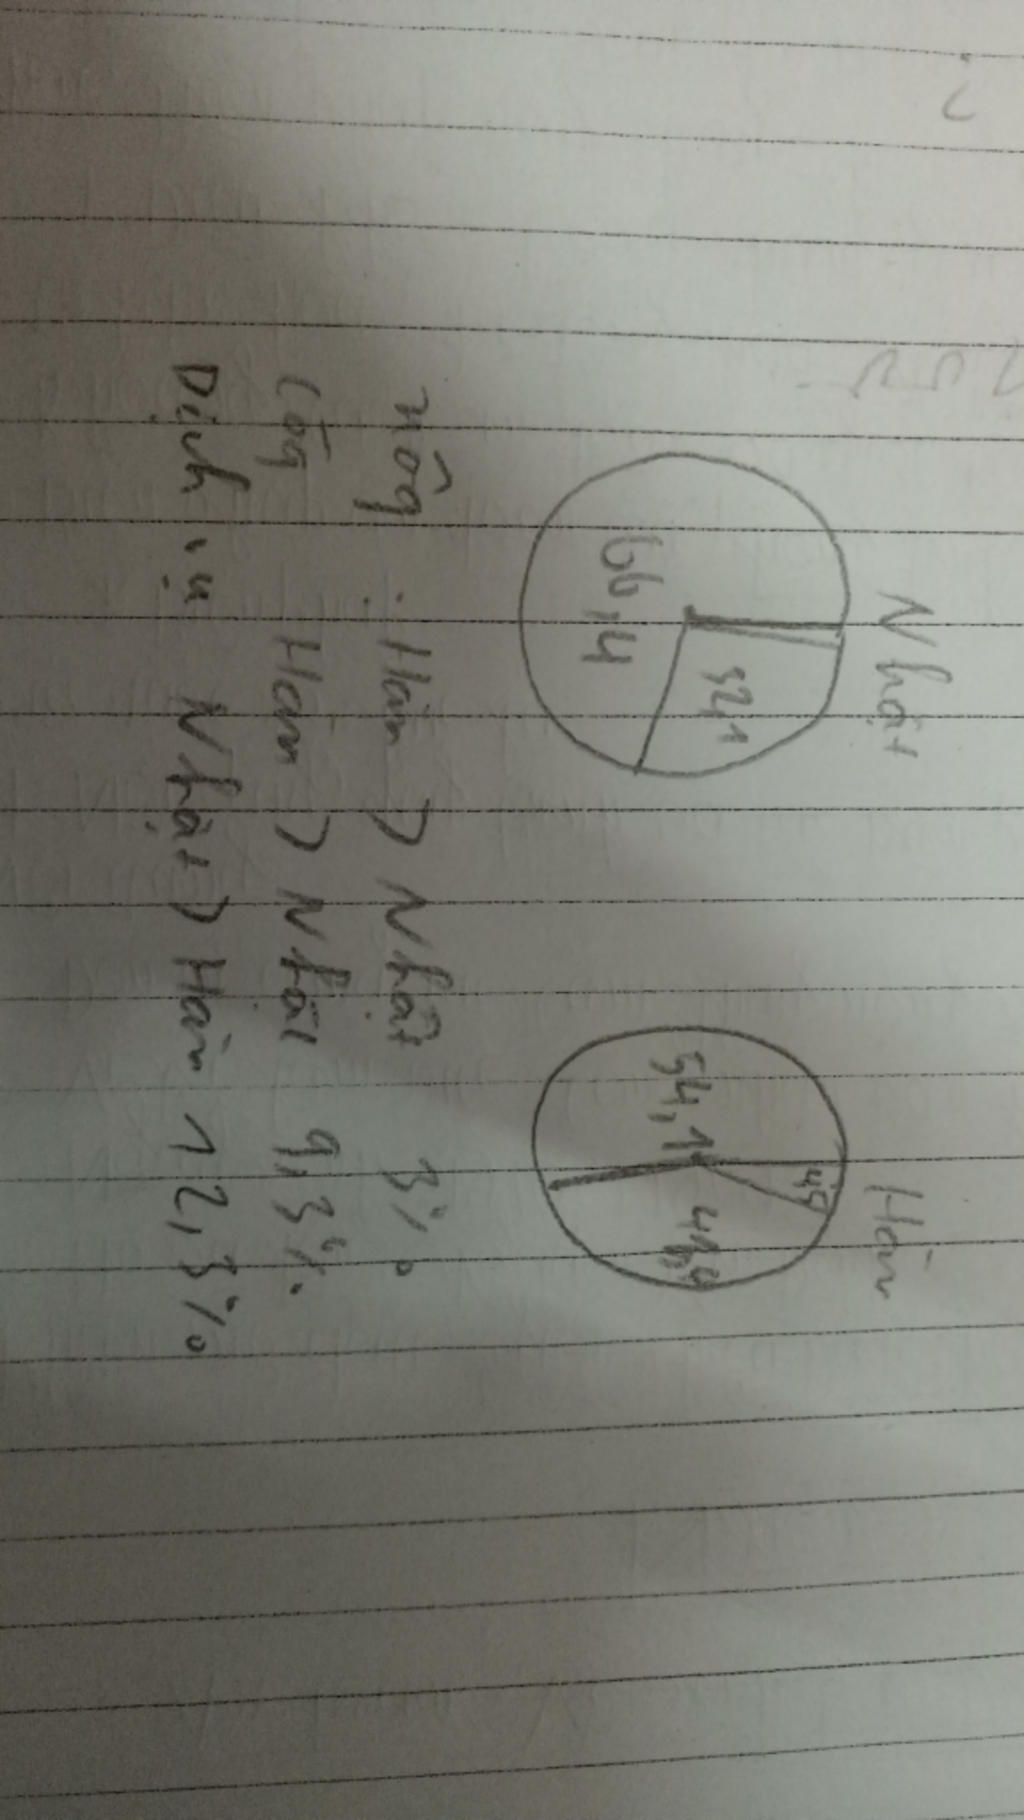 Nhật Hàn
32,1 4,5
66,4 41,4
54,1
nông : Hàn > Nhật 3%
Công Hàn > Nhật 9,3%
Dịch vụ Nhật > Hàn 12,3%